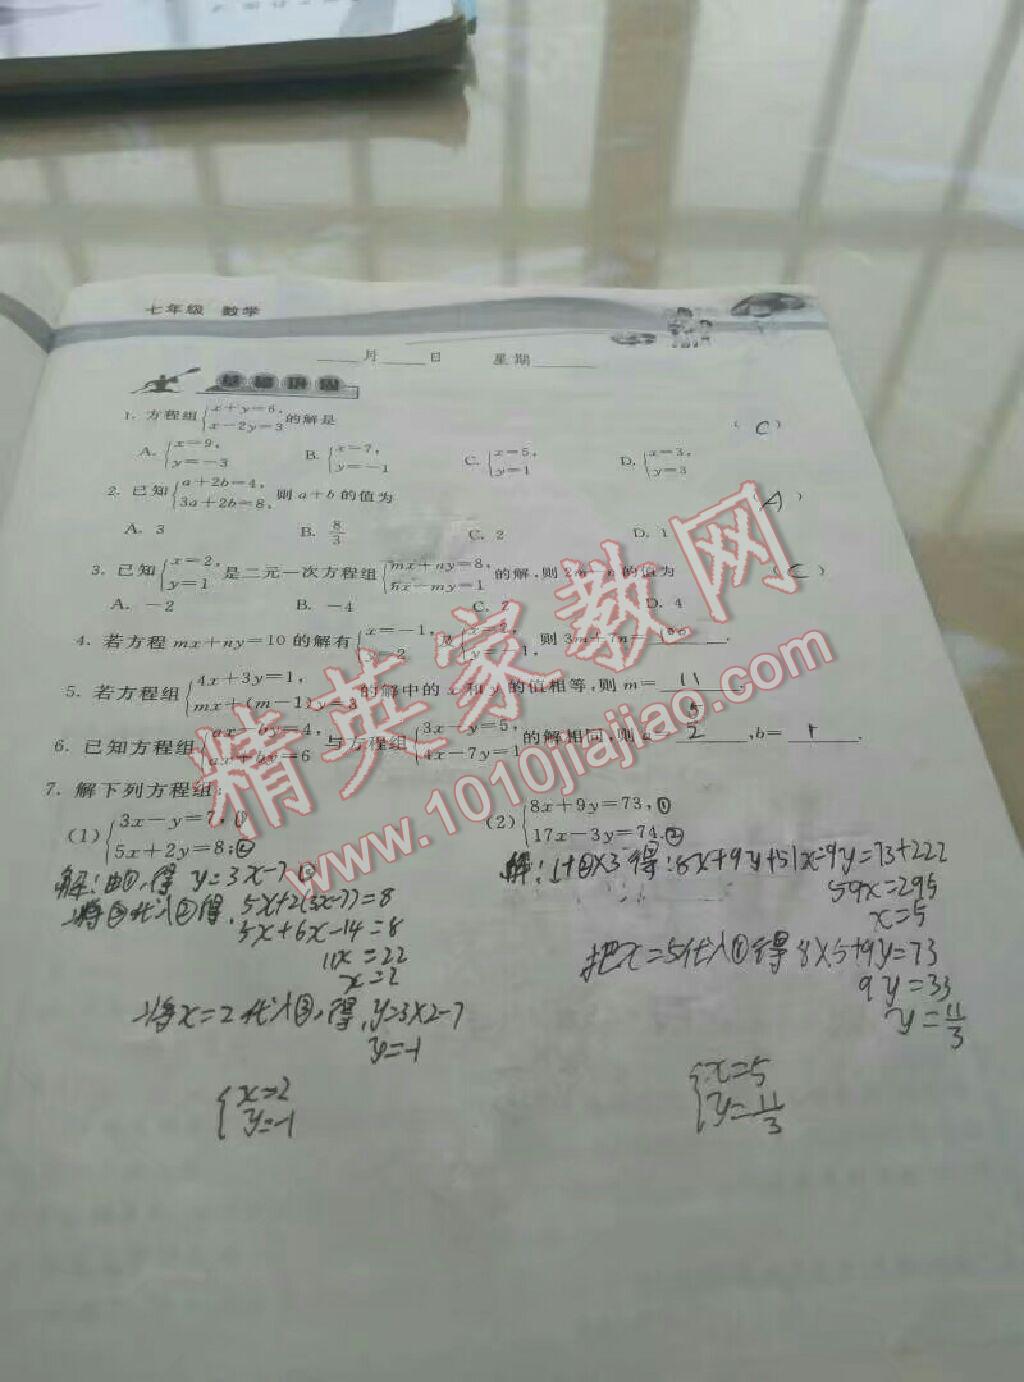 七年级 数学
月 日 星期
1. 方程组{x+y=6, x-2y=3 的解是 ( C )
A. {x=9, y=-3 B. {x=7, y=-1 C. {x=5, y=1 D. {x=3, y=3
2. 已知{a+2b=4, 3a+2b=8, 则a+b的值为 ( A )
A. 3 B. 8/3 C. 2 D. 1
3. 已知{x=2, y=1 是二元一次方程组{mx+ny=8, nx-my=1 的解,则2m-n的值为 ( C )
A. -2 B. -4 C. 2 D. 4
4. 若方程mx+ny=10的解有{x=-1, y=2 及{x=2, y=-1, 则3m+7n=100.
5. 若方程组{4x+3y=1, mx+(m-1)y=3 的解中的x和y的值相等,则m= 11 .
6. 已知方程组{ax-by=4, ax+by=6 与方程组{3x-y=5, 4x-7y=1 的解相同,则a= 5/2 ,b= 1 .
7. 解下列方程组:
(1){3x-y=7,① 5x+2y=8;②
解:由①,得 y=3x-7 ③
将③代入②得,5x+2(3x-7)=8
5x+6x-14=8
11x=22
x=2
将x=2代入③,得,y=3×2-7
y=-1
{x=2 y=-1
(2){8x+9y=73,① 17x-3y=74.②
解:1+②×3得:8x+9y+51x-9y=73+222
59x=295
x=5
把x=5代入①得8×5+9y=73
9y=33
y=11/3
{x=5 y=11/3
精英家教网
www.1010jiajiao.com